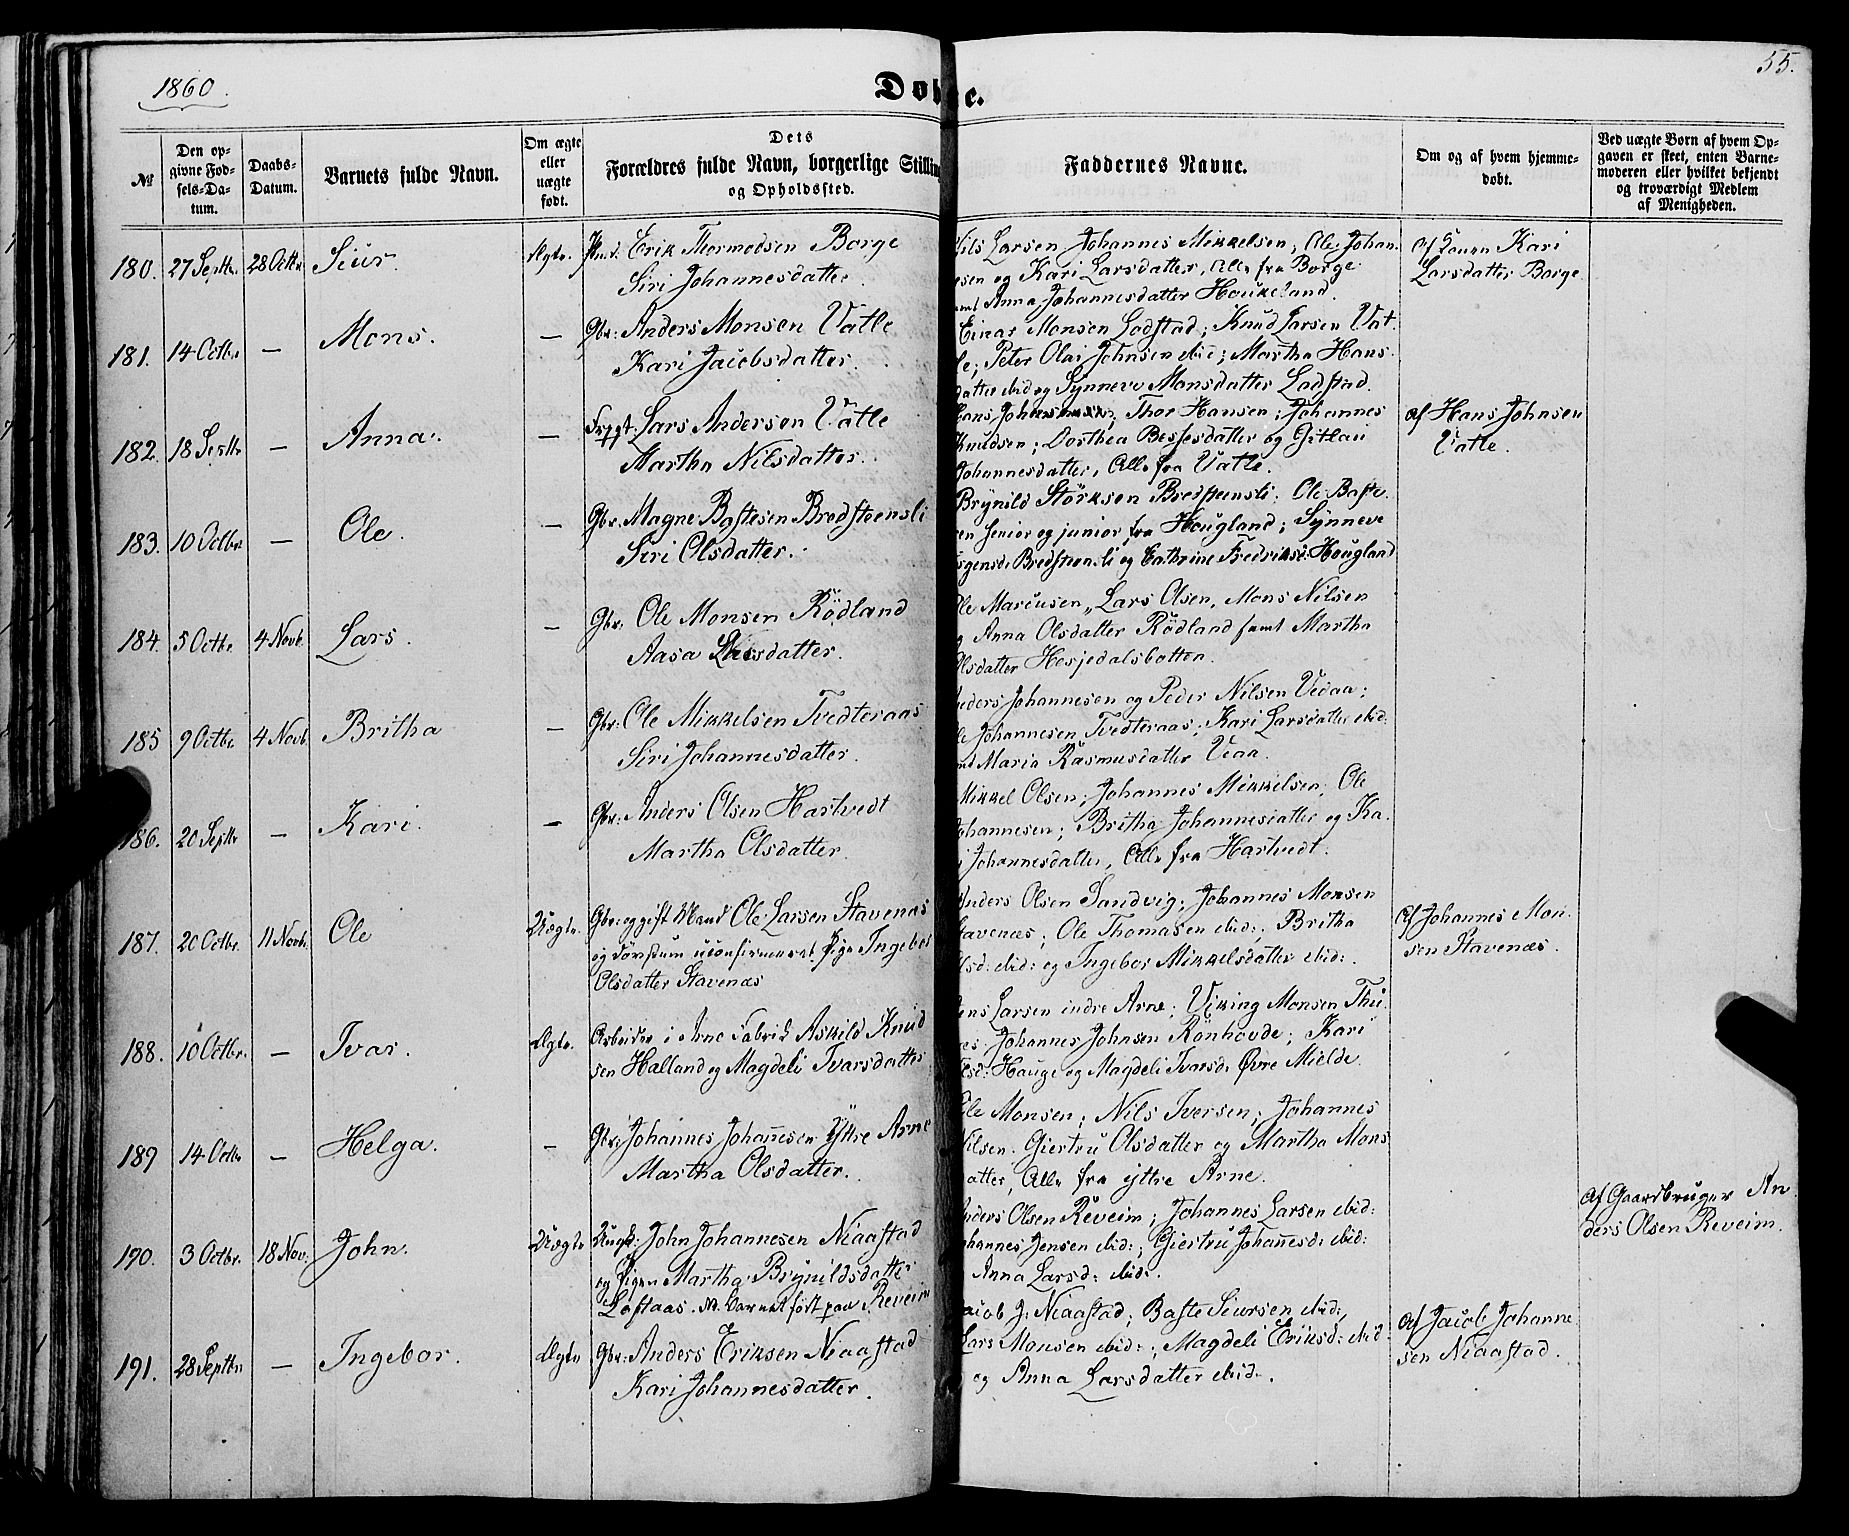 1860.
Døbte.
55.
No
Den op-
givne Fød-
sels-Da-
tum.
Daabs-
Datum.
Barnets fulde Navn.
Om ægte
eller
uægte
født.
Dets
Forældres fulde Navn, borgerlige Stilling
og Opholdssted.
Faddernes Navne.
Om og af hvem hjemme-
døbt.
Ved uægte Børn af hvem Op-
gaven er skeet, enten Barne-
moderen eller hvilket bekjendt
og troværdigt Medlem
af Menigheden.
180. 27 Septbr. 28 Octbr. Siur. Ægte.
Erik Thormodsen Borge
Siri Johannesdatter
Nils Larsen, Johannes Mikkelsen, Ole Johan-
sen og Kari Larsdatter, Alle fra Borge
samt Anna Johannesdatter Houkeland.
Af Kari
Larsdatter Borge
181. 14 Octbr — Mons. —
Gbr: Anders Monsen Vatle
Kari Jacobsdatter.
Einar Monsen Lodstad; Knud Larsen Vat-
le; Peter Olai Johnsen ibid; Martha Hans-
datter ibid og Synneve Monsdatter Lodstad.
182. 18 Septbr — Anna. —
Lars Andersen Vatle
Martha Nilsdatter.
Hans Johnsen, Thor Hansen; Johannes
Knudsen; Dorthea Bessesdatter og Gitlau
Johannesdatter, Alle fra Vatle.
Af Hans Johnsen
Vatle.
183. 10 Octbr. — Ole. —
Gbr. Magne Bastesen Bredsteensli
Siri Olsdatter.
Brynild Störksen Bredsteensli. Ole Baste-
sen senior og junior fra Hougland; Synneve
Bredsteensli og Cathrine Fredriksd: Hougland
184. 5 Octbr. 4 Novb. Lars. —
Gbr: Ole Monsen Rödland
Aasa Larsdatter.
Ole Marcusen, Lars Olsen, Mons Nilsen
og Anna Olsdatter Rödland samt Martha
Olsdatter Hesjedalsbotten.
185 9 Octbr. 4 Novb. Britha —
Gbr: Ole Mikkelsen Tvedteraas
Siri Johannesdatter.
Anders Johannesen og Peder Nilsen Vedaa;
Ole Johannesen Tvedteraas; Kari Larsdatter ibid:
samt Maria Rasmusdatter Veaa.
186. 20 Septbr — Kari. —
Gbr: Anders Olsen Hartvedt
Martha Olsdatter.
Mikkel Olsen; Johannes Mikkelsen; Ole
Johannesen; Britha Johannesdatter og Ka-
ri Johannesdatter, Alle fra Hartvedt.
187. 20 Octbr. 11 Novb. Ole Uægte.
Gbr: og gift Mand Ole Larsen Stavenæs
og uconfirmeret Pige Ingebor
Olsdatter Stavenæs
Anders Olsen Sandvig; Johannes Monsen
Stavenæs; Ole Thomasen ibid:; Britha
Olsd: ibid: og Ingebor Mikkelsdatter ibid:.
Af Johannes Mon-
sen Stavenæs.
188. 10 Octbr. — Ivar. Ægte.
Arbeider i Arne Fabrik Askild Knud-
sen Halland og Magdeli Ivarsdatter
Jens Larsen indre Arne; Viking Monsen Thu-
nes Johannes Johnsen Rönhovde; Kari
Olsd: Hauge og Magdeli Ivarsd. Øvre Mielde.
189 14 Octbr — Helga. —
Gbr: Johannes Johannesen Yttre Arne
Martha Olsdatter.
Ole Monsen; Nils Iversen; Johannes
Nilsen. Giertru Olsdatter og Martha Mons-
datter, Alle fra yttre Arne.
190. 3 Octbr. 18 Nov. John. Uægte
Ungk: John Johannesen Niaastad
og Pigen Martha Brynildsdatter
Loftaas. NB. Barnet født paa Reveim
Anders Olsen Reveim; Johannes Larsen ibid:
Johannes Jensen ibid:; Giertru Johannesd: ibid:
Anna Larsd: ibid:.
Af Gaardbruger An-
ders Olsen Reveim.
191. 28 Septbr — Ingebor. Ægte
Gbr: Anders Eriksen Niaastad
Kari Johannesdatter.
Jacob J: Niaastad; Baste Siursen ibid:,
Lars Monsen ibid:; Magdeli Eriksd: ibid:
og Anna Larsdatter ibid:.
Af Jacob Johanne-
sen Niaastad.